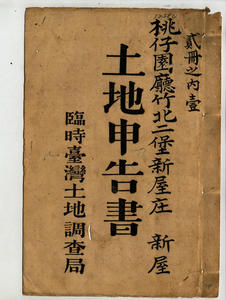 貳冊之內壹
桃仔園廳竹北二堡新屋庄　新屋
土地申告書
臨時臺灣土地調查局